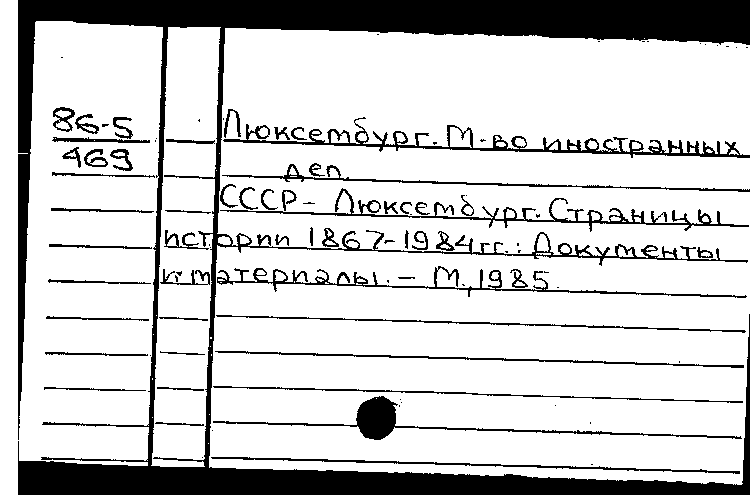 86-5
469
Люксембург. М-во иностранных
дел.
СССР - Люксембург. Страницы
истории 1867-1984 гг.: Документы
и материалы. - М., 1985.